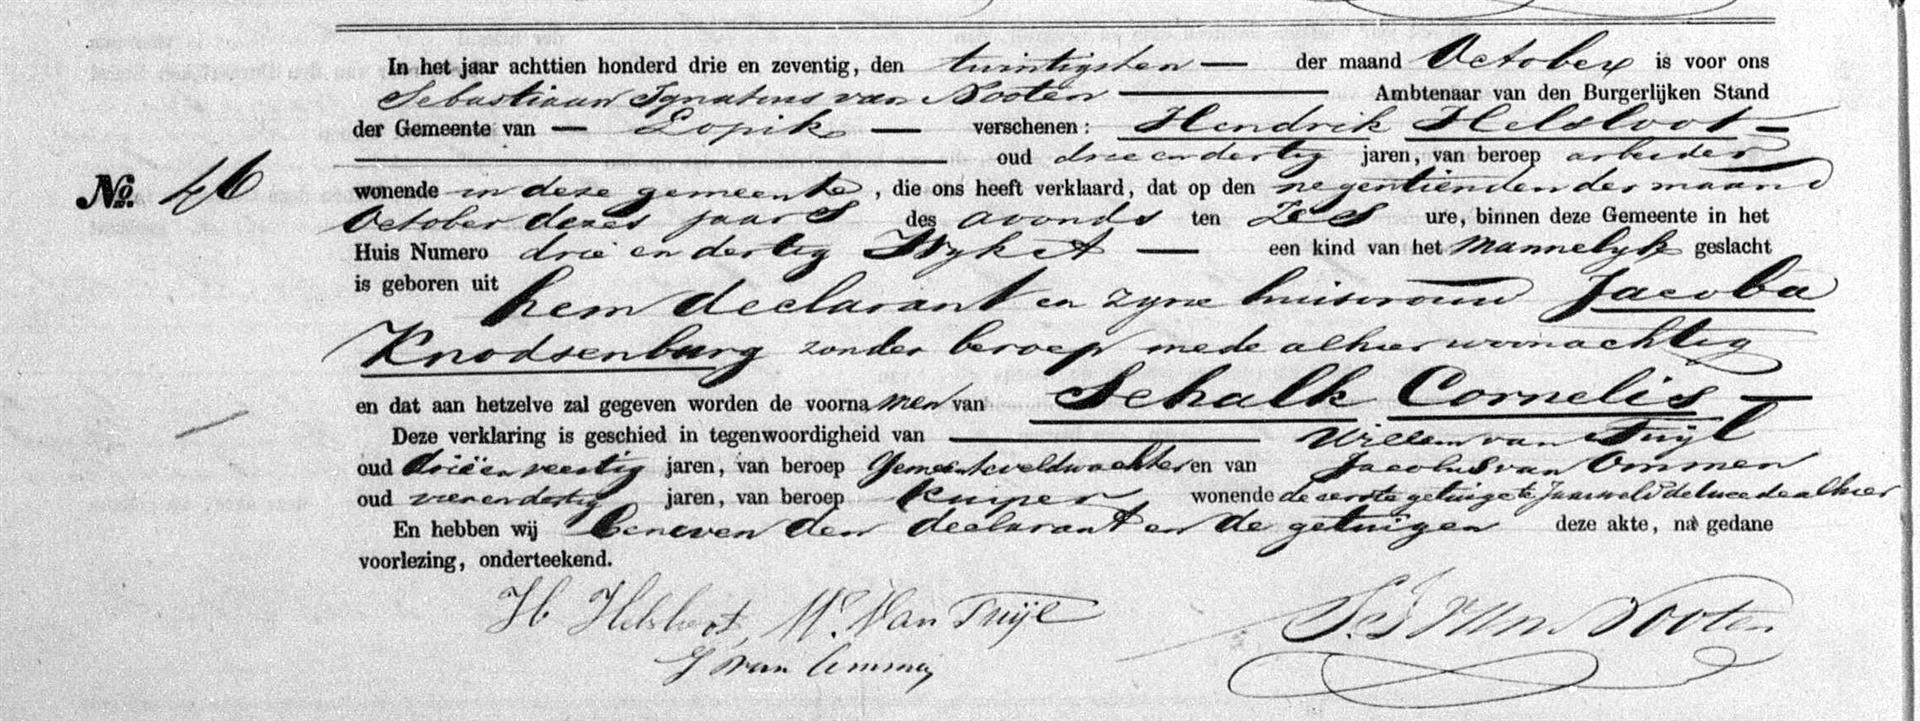 In het jaar achttien honderd drie en zeventig, den twintigsten — der maand October is voor ons
Sebastiaan Ignatius van Nooten — Ambtenaar van den Burgerlijken Stand
der Gemeente van — Lopik — verschenen: Hendrik Helsloot —
— oud drie en dertig jaren, van beroep arbeider
No. 46 wonende in deze gemeente, die ons heeft verklaard, dat op den negentienden der maand
October dezes jaars des avonds ten zes ure, binnen deze Gemeente in het
Huis Numero drie en dertig Wyk A — een kind van het mannelyk geslacht
is geboren uit hem declarant en zyne huisvrouw Jacoba
Knodsenburg zonder beroep mede alhier woonachtig
en dat aan hetzelve zal gegeven worden de voornamen van Schalk Cornelis —
Deze verklaring is geschied in tegenwoordigheid van — Willem van Tuijl
oud drieën veertig jaren, van beroep Gemeenteveldwachter en van Jacobus van Ommen
oud vier en dertig jaren, van beroep Kuiper, wonende de eerste getuige te Jaarsveld de tweede alhier
En hebben wij beneven den declarant en de getuigen deze akte, na gedane
voorlezing, onderteekend.
H Helsloot, W. Van Tuijl S. I. Van Nooten
J van Ommen